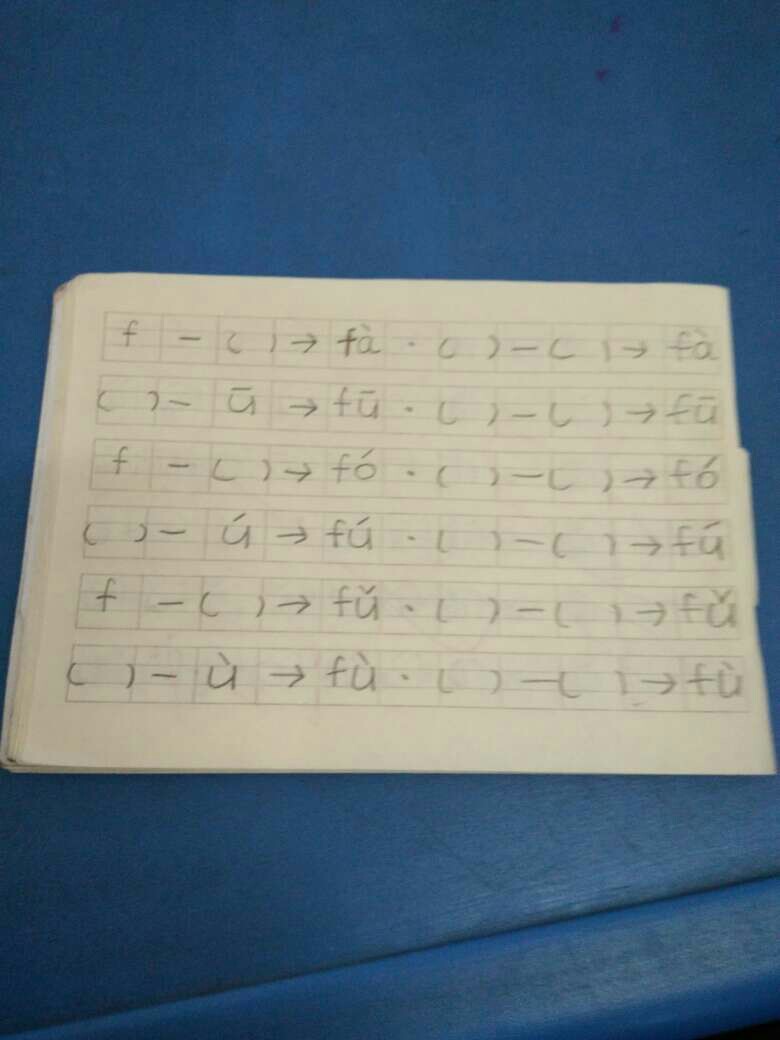 f - ( ) → fà · ( ) - ( ) → fà
( ) - ū → fū · ( ) - ( ) → fū
f - ( ) → fó · ( ) - ( ) → fó
( ) - ú → fú · ( ) - ( ) → fú
f - ( ) → fǔ · ( ) - ( ) → fǔ
( ) - ù → fù · ( ) - ( ) → fù